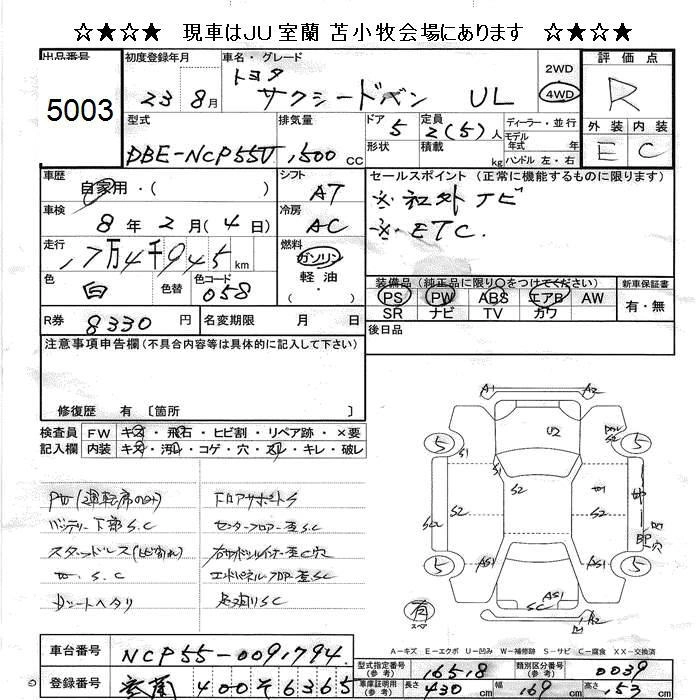 ☆★☆★ 現車はJU室蘭 苫小牧会場にあります ☆★☆★
出品番号
5003
初度登録年月
23 8月
車名・グレード
トヨタ
サクシードバン UL
2WD
4WD
評価点
R
外装 内装
E C
型式
DBE-NCP55V
排気量
1,500 cc
ドア
5
形状
定員
2(5)人
積載
kg
ディーラー・並行
モデル
年式 年
ハンドル 左・右
車歴
自家用・( )
車検
8年2月(4日)
走行
17万4千945km
色
白
色替
色コード
058
シフト
AT
冷房
AC
燃料
ガソリン
軽油
・
( )
セールスポイント(正常に機能するものに限ります)
※社外ナビ
※ETC.
装備品(純正品に限り○をつけてください)
PS PW ABS エアB AW
SR ナビ TV カワ
新車保証書
有・無
R券 8330円
名変期限 月 日
後日品
注意事項申告欄(不具合内容等は具体的に記入して下さい)
修復歴 有〔箇所 〕
検査員
記入欄
FW キズ・飛石・ヒビ割・リペア跡・×要
内装 キズ・汚れ・コゲ・穴・スレ・キレ・破レ
PW(運転席のみ)
バッテリー下部S.C
スタッドレス(ヒビ割れ)
S.C
シートヘタリ
フロアサポートS
センターフロアー歪S.C
エンドパネルフロアー歪SC
足廻りSC
A1 A2
U2
S1 S1
S2 S2 S2
5 5
5 5
AS1 AS1
AS1
SC
穴
有
スペア
A-キズ E-エクボ U-凹み W-補修跡 S-サビ C-腐食 XX-交換済
車台番号 NCP55-0091794
登録番号 室蘭 400 そ 6365
型式指定番号
(参考)
16518
類別区分番号
(参考)
0039
車庫証明用
(参考)
長さ 430cm 幅 169cm 高さ 153cm